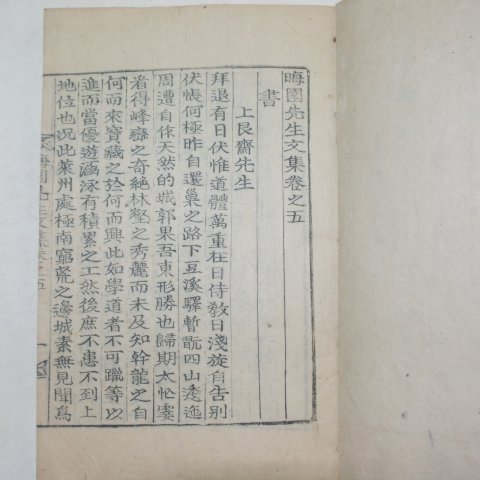 晦園先生文集卷之五
書
上艮齋先生
拜退有日伏惟道體萬重在日侍敎日淺旋自告別
伏悵何極昨自還巢之路下豆溪驛暫翫四山逶迤
周遭自作天然的城郭果吾東形勝也歸期太忙
看得峰巒之奇絶林壑之秀麗而未及知幹龍之自
何而來寶藏之於何而興此如學道者不可躐等以
進而當優遊涵泳有積累之工然後庶不患不到上
地位也况此萊州處極南窮荒之邊城素無見聞烏